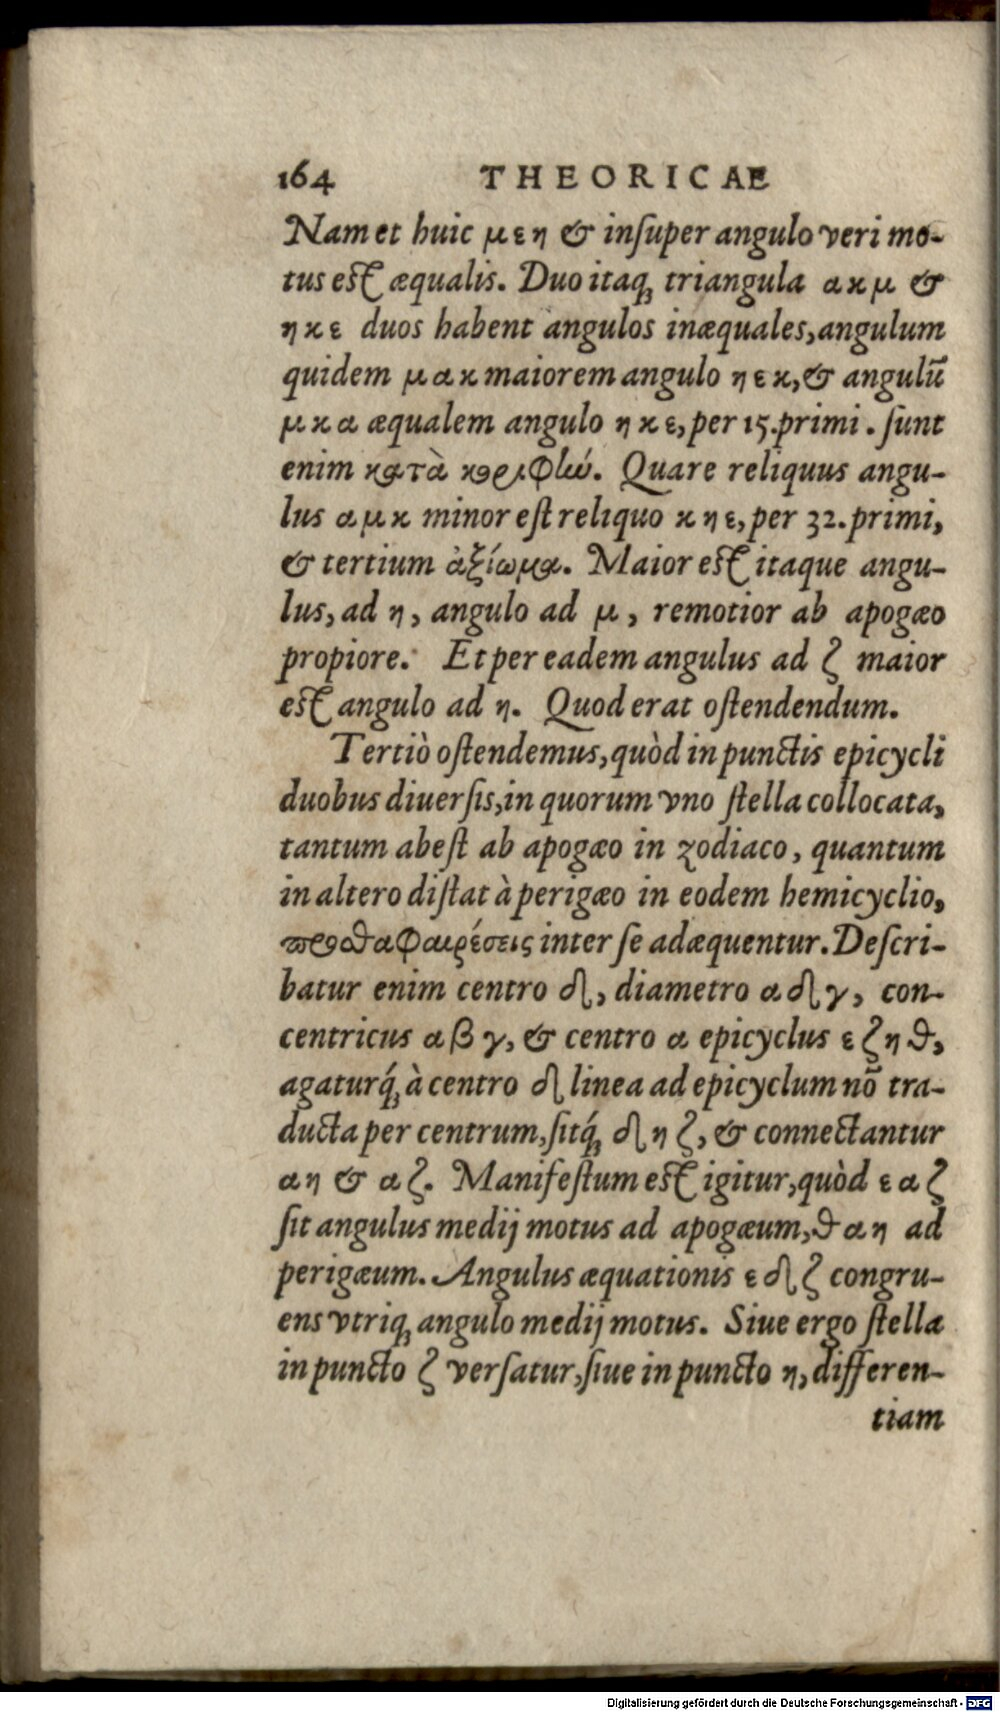 164 THEORICAE
Nam et huic μ ε η & inſuper angulo veri mo-
tus eſt æqualis. Duo itaq́; triangula α κ μ &
η κ ε duos habent angulos inæquales, angulum
quidem μ α κ maiorem angulo η ε κ, & angulū
μ κ α æqualem angulo η κ ε, per 15. primi. ſunt
enim κατὰ κορυφὴν. Quare reliquus angu-
lus α μ κ minor eſt reliquo κ η ε, per 32. primi,
& tertium ἀξίωμα. Maior eſt itaque angu-
lus, ad η, angulo ad μ, remotior ab apogæo
propiore. Et per eadem angulus ad ζ maior
eſt angulo ad η. Quod erat oſtendendum.
Tertiò oſtendemus, quòd in punctis epicycli
duobus diuerſis, in quorum vno ſtella collocata,
tantum abeſt ab apogæo in zodiaco, quantum
in altero diſtat à perigæo in eodem hemicyclio,
προσθαφαιρέσεις inter ſe adæquentur. Deſcri-
batur enim centro δ, diametro α δ γ, con-
centricus α β γ, & centro α epicyclus ε ζ η θ,
agaturq́; à centro δ linea ad epicyclum nō tra-
ducta per centrum, ſitq́; δ η ζ, & connectantur
α η & α ζ. Manifeſtum eſt igitur, quòd ε α ζ
ſit angulus medij motus ad apogæum, θ α η ad
perigæum. Angulus æquationis ε δ ζ congru-
ens vtriq; angulo medij motus. Siue ergo ſtella
in puncto ζ verſatur, ſiue in puncto η, differen-
tiam
Digitalisierung gefördert durch die Deutsche Forschungsgemeinschaft - DFG